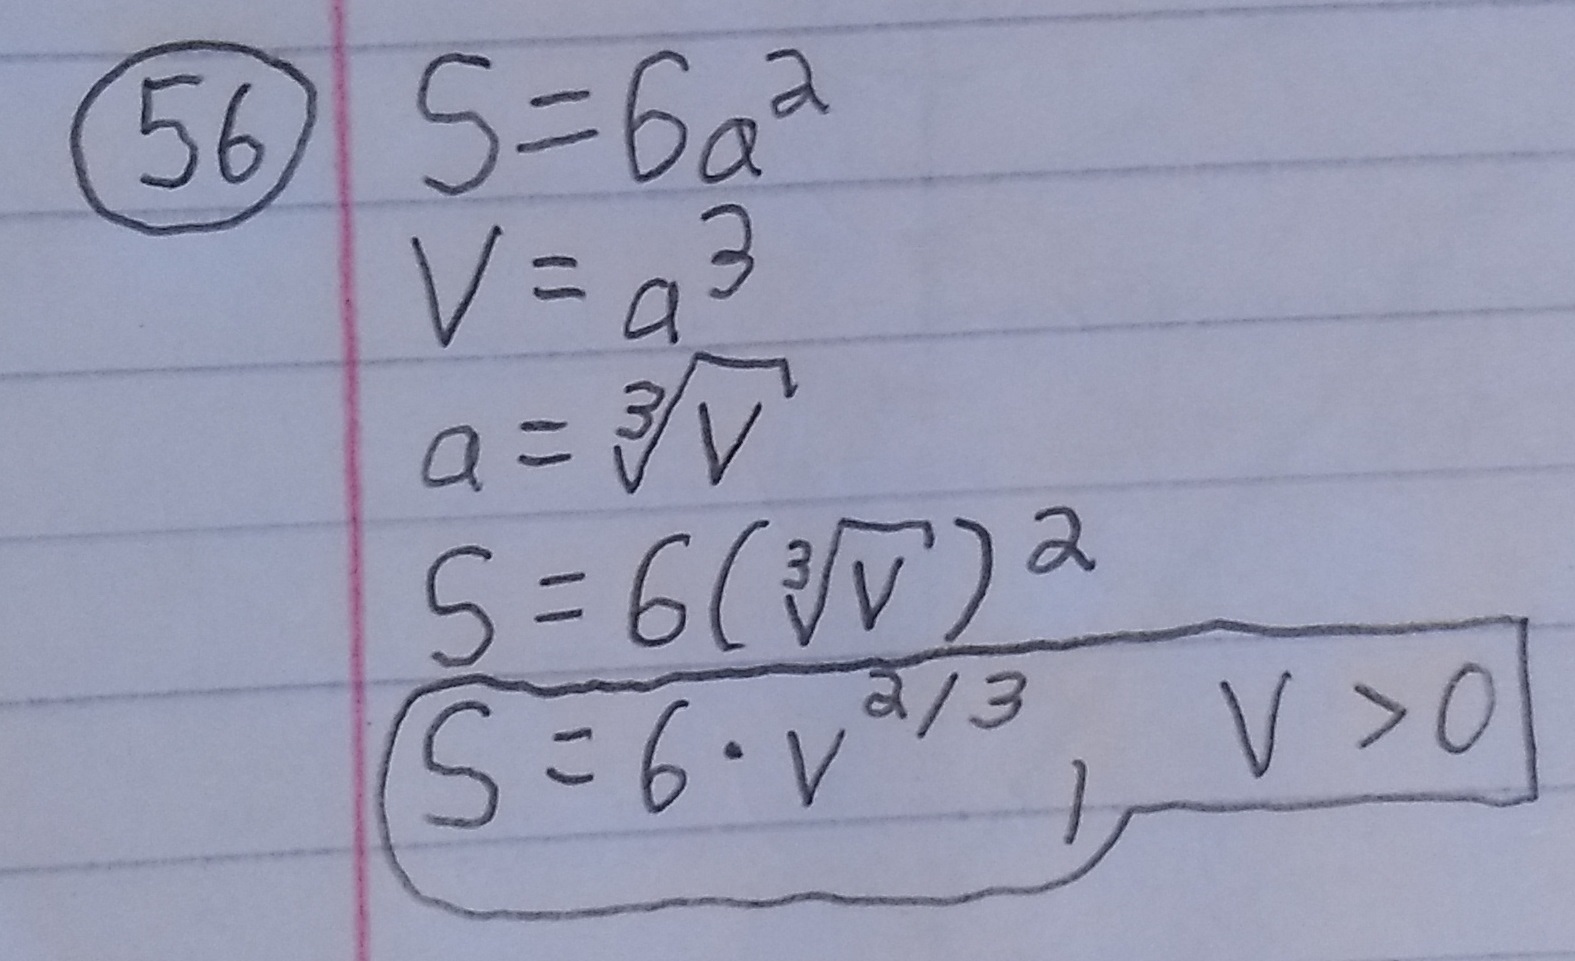 56 S = 6a²
V = a³
a = ∛V
S = 6(∛V)²
S = 6 · V^2/3, V > 0